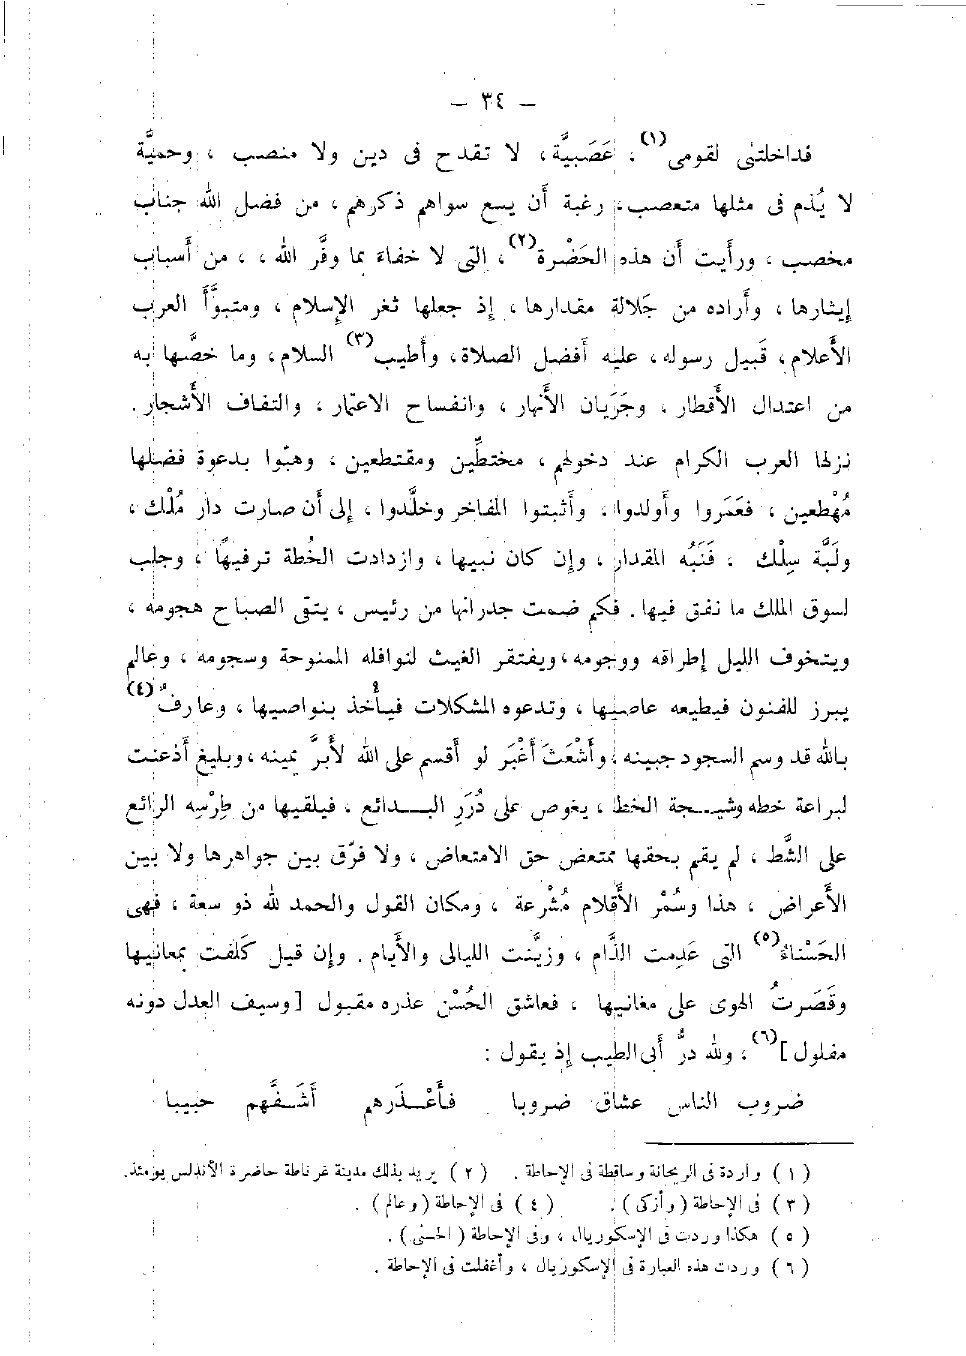 — ٣٤ —
فداخلتنى لقومى(١) ، عَصَبيَّة، لا تقدح فى دين ولا منصب ، وحميَّة
لا يُذم فى مثلها متعصب، رغبة أن يسع سواهم ذكرهم، من فضل الله جناب
مخصب ، ورأيت أن هذه الحَضْرة(٢)، التى لا خفاء بما وفَّر الله ، ، من أسباب
إيثارها ، وأراده من جَلالة مقدارها ، إذ جعلها ثغر الإسلام ، ومتبوَّأ العرب
الأَعلام، قَبيل رسوله، عليه أفضل الصلاة، وأطيب(٣) السلام، وما خصَّها به
من اعتدال الأَقطار ، وجَرَيان الأَنهار ، وانفساح الاعتمار ، والتفاف الأَشجار.
نزلها العرب الكرام عند دخولهم ، مختطِّين ومقتطعين ، وهبّوا بدعوة فضلها
مُهْطعين ، فعَمَروا وأولدوا ، وأثبتوا المفاخر وخلَّدوا ، إلى أن صارت دار مُلْك ،
ولَبَّة سِلْك ، فَنَبُه المقدار ، وإن كان نبيها ، وازدادت الخُطة ترفيهًا ، وجلب
لسوق الملك ما نفق فيها . فكم ضمت جدرانها من رئيس ، يتقى الصباح هجومه ،
ويتخوف الليل إطراقه ووجومه، ويفتقر الغيث لنوافله الممنوحة وسجومه ، وعالم
يبرز للفنون فيطيعه عاصيها ، وتدعوه المشكلات فيأْخذ بنواصيها ، وعارفٌ(٤)
بالله قد وسم السجود جبينه ، وأَشْعَثَ أَغْبَر لو أقسم على الله لأَبرَّ يمينه ، وبليغ أذعنت
لبراعة خطه وشيـجة الخط ، يغوص على دُرَرِ البـدائع ، فيلقيها من طِرْسِه الرائع
على الشَّط ، لم يقم بحقها ممتعض حق الامتعاض ، ولا فرّق بين جواهرها ولا بين
الأَعراض ، هذا وسُمْر الأَقلام مُشْرعة ، ومكان القول والحمد لله ذو سعة ، فهى
الحَسْناءُ(٥) التى عَدِمت الذَّام ، وزيَّنت الليالى والأَيام . وإن قيل كَلفت بمعانيها
وقَصَرتُ الهوى على مغانيها ، فعاشق الحُسْن عذره مقبول [ وسيف العدل دونه
مفلول ](٦)، ولله درُّ أبى الطيب إذ يقول :
ضروب الناس عشاق ضروبا    فأَعْـذَرهم أَشَـفَّهم حبيبا
( ١ ) واردة فى الريحانة وساقطة فى الإحاطة . ( ٢ ) يريد بذلك مدينة غرناطة حاضرة الأندلس يومئذ.
( ٣ ) فى الإحاطة (وأزكى) . ( ٤ ) فى الإحاطة (وعالم) .
( ٥ ) هكذا وردت فى الإسكوريال ، وفى الإحاطة ( الحسنى ) .
( ٦ ) وردت هذه العبارة فى الإسكوريال ، وأغفلت فى الإحاطة .